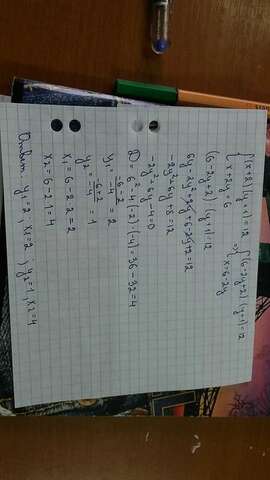 {(x+8)(y+1)=12 ⇒ {(6-2y+2)·(y+1)=12
{x+2y=6 {x=6-2y
(6-2y+2)·(y+1)=12
6y-2y²+2y+6-2y+2=12
-2y²+6y+8=12
-2y²+6y-4=0
D=6²-4·(-2)·(-4)=36-32=4
y₁=(-6-2)/-4=2
y₂=(-6+2)/-4=1
x₁=6-2·2=2
x₂=6-2·1=4
Ответ: y₁=2, x₁=2; y₂=1, x₂=4